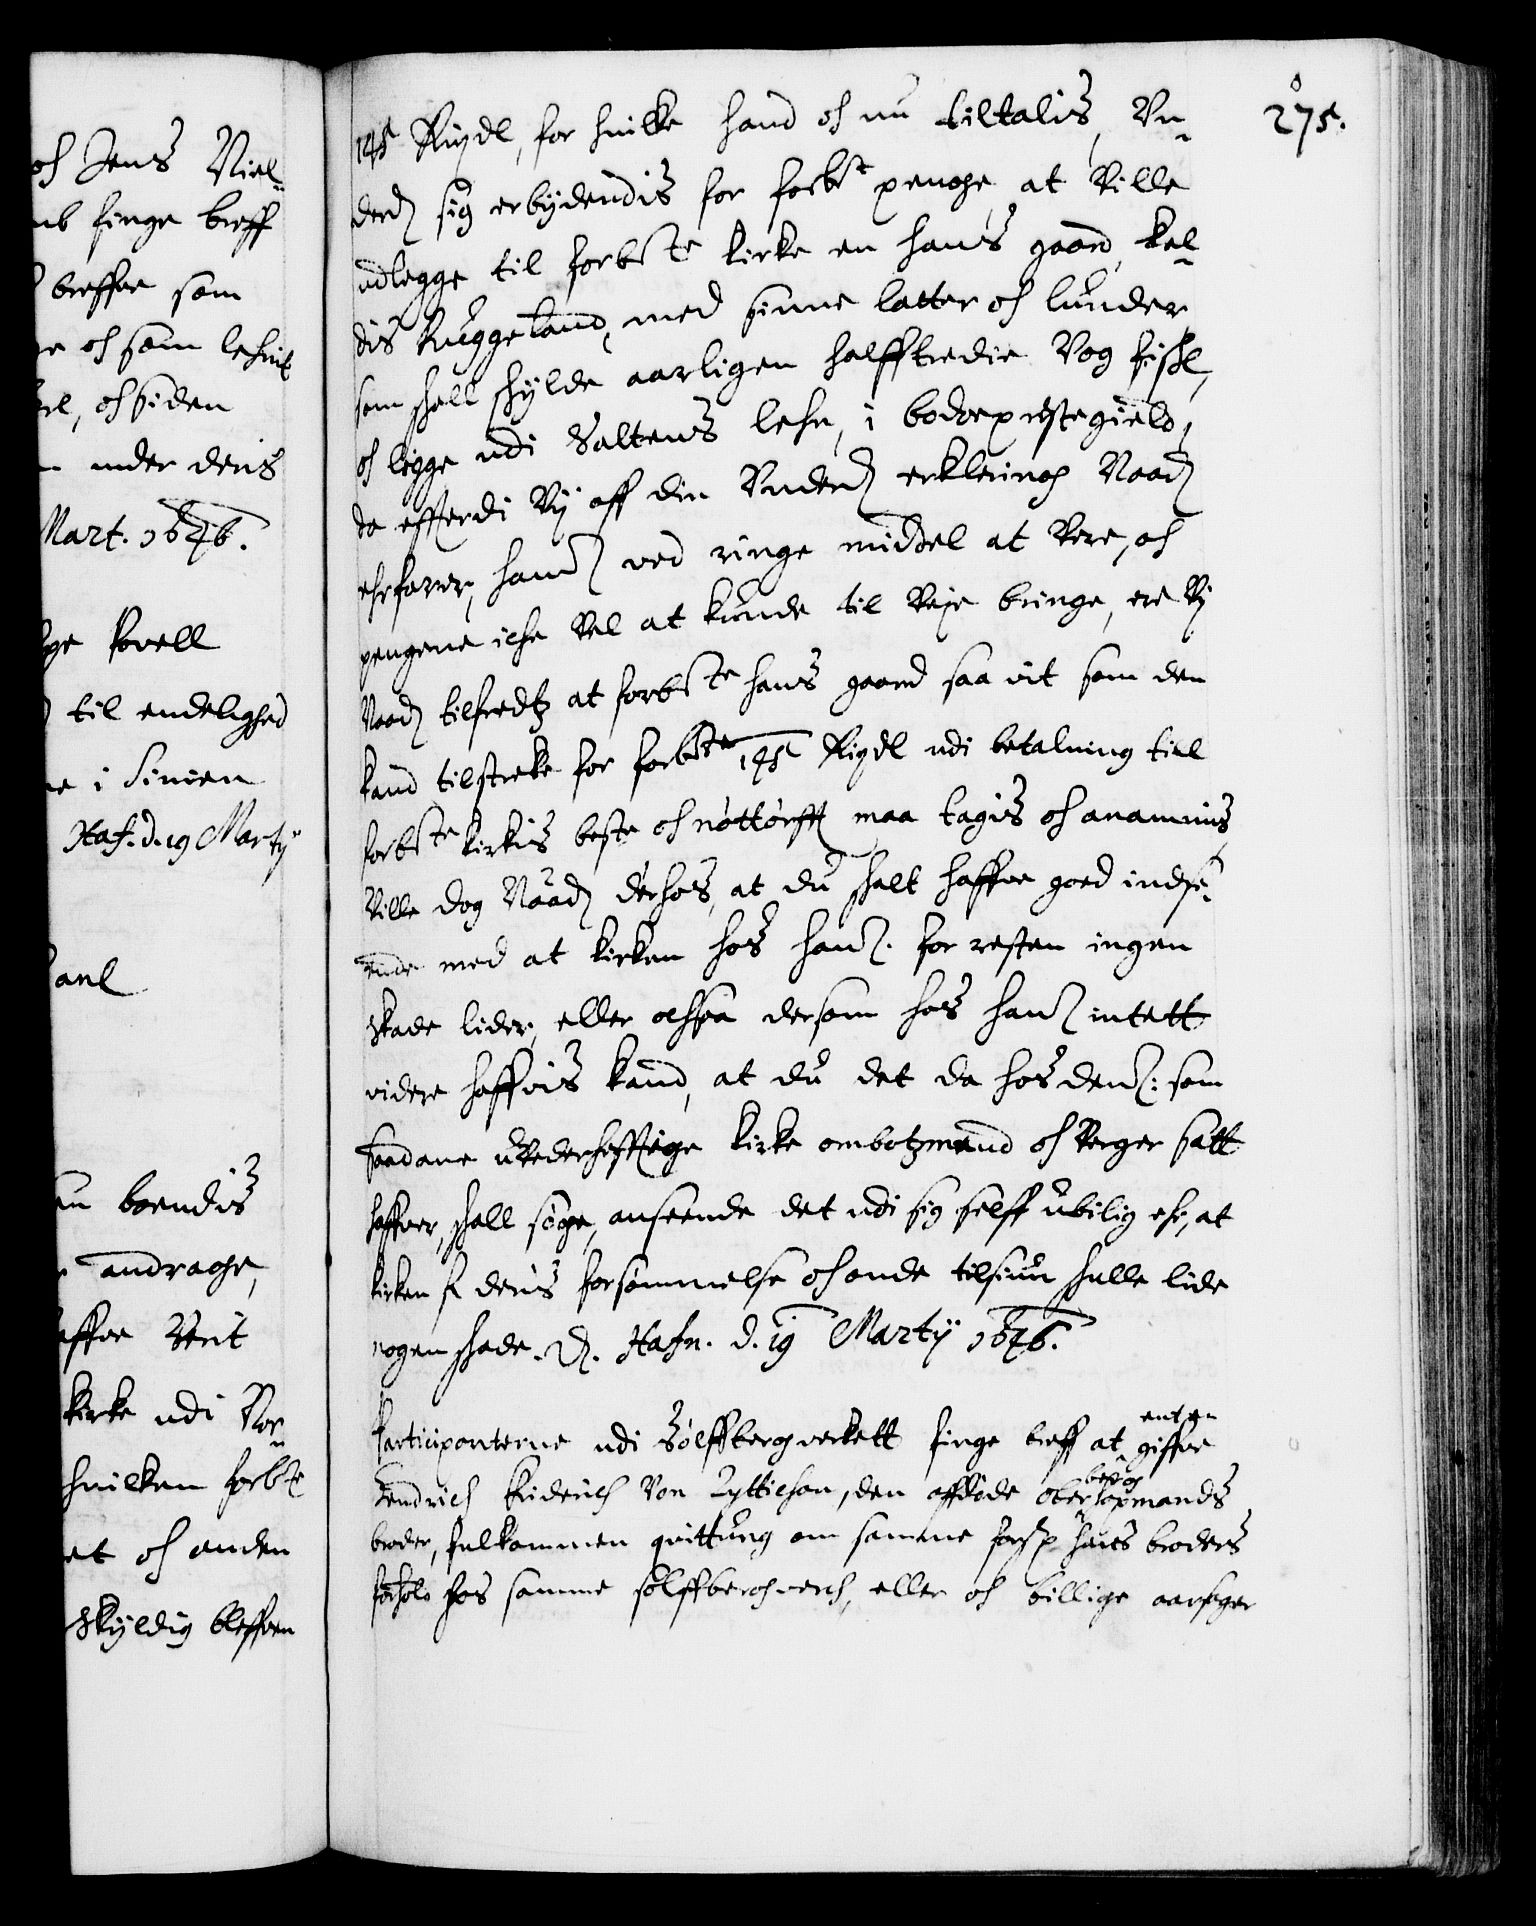 och Jens Niel-
finge breff
breffue som
och som lehnit
och siden
under deris
Mart. 1646.
Povell
til endelighed
i Sinien
Haf. d. 19 Martij
boendis
andrage,
Verit
kirke udi Nor-
huilken forbte
et och anden
skyldig bleffuen
275.
145 Rixdl, for huilke hand och nu tiltalis, Un-
derd sig erbydendis for forbte penge, at Ville
udlegge til forbte kirke en hans gaard, kal-
dis Ruggeland, med sinne latter och lunder
som skall skylde aarligen halfftredie Vog fiskl,
och ligge udi Saltens lehn, i bodøe prestegield,
da efterdi Vij aff din Underd erklering Naad
ehrfarer, hannd ved ringe middel at Vere, och
pengene iche Vel at kunde til Veje bringe, ere Vj
Naad tilfredtz at forbte hans gaard saa vit som den
kand tilstrekke for forbte 145 Rigdl udi betalning till
forbte kirkis beste och nøttørfft maa tagis och anammis
Ville dog Naad derhos, at du skalt haffue goed indse-
ende med at kirken hos hand. for resten ingen
skade lider, eller ochsaa dersom hos hand intett
videre haffuis kand, at du det da hos dend: som
saadane uVederhefftige kirke ombotzmend och Verger satt
haffuer, skall søge, anseende det udi sig selff ubilig ehr, at
kirken f deris forsømmelse och onde tilsiun skulle lide
nogen skade. D. Hafn. d. 19 Martij 1646.
Participanterne udi Sølffbergverkett finge breff at enten giffue
Hendrich Friderich Von Lyttichau, den affdøde oberberghopmands
broder, fulkommen quittung om samme forsp hans broders
forhold hos samme sølffbergverch, eller och billige aarsager